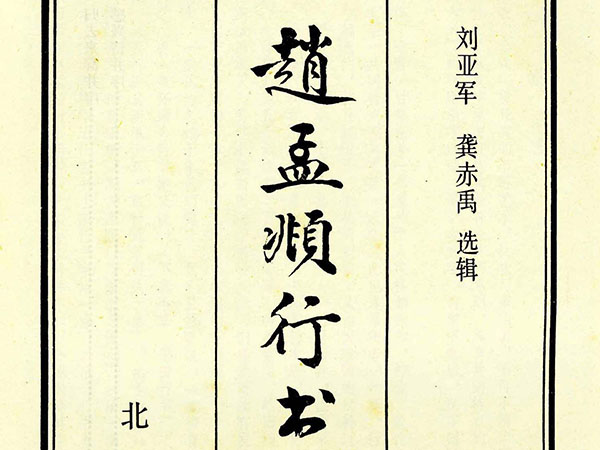 刘亚军 龚赤禹 选辑
趙孟頫行书
北